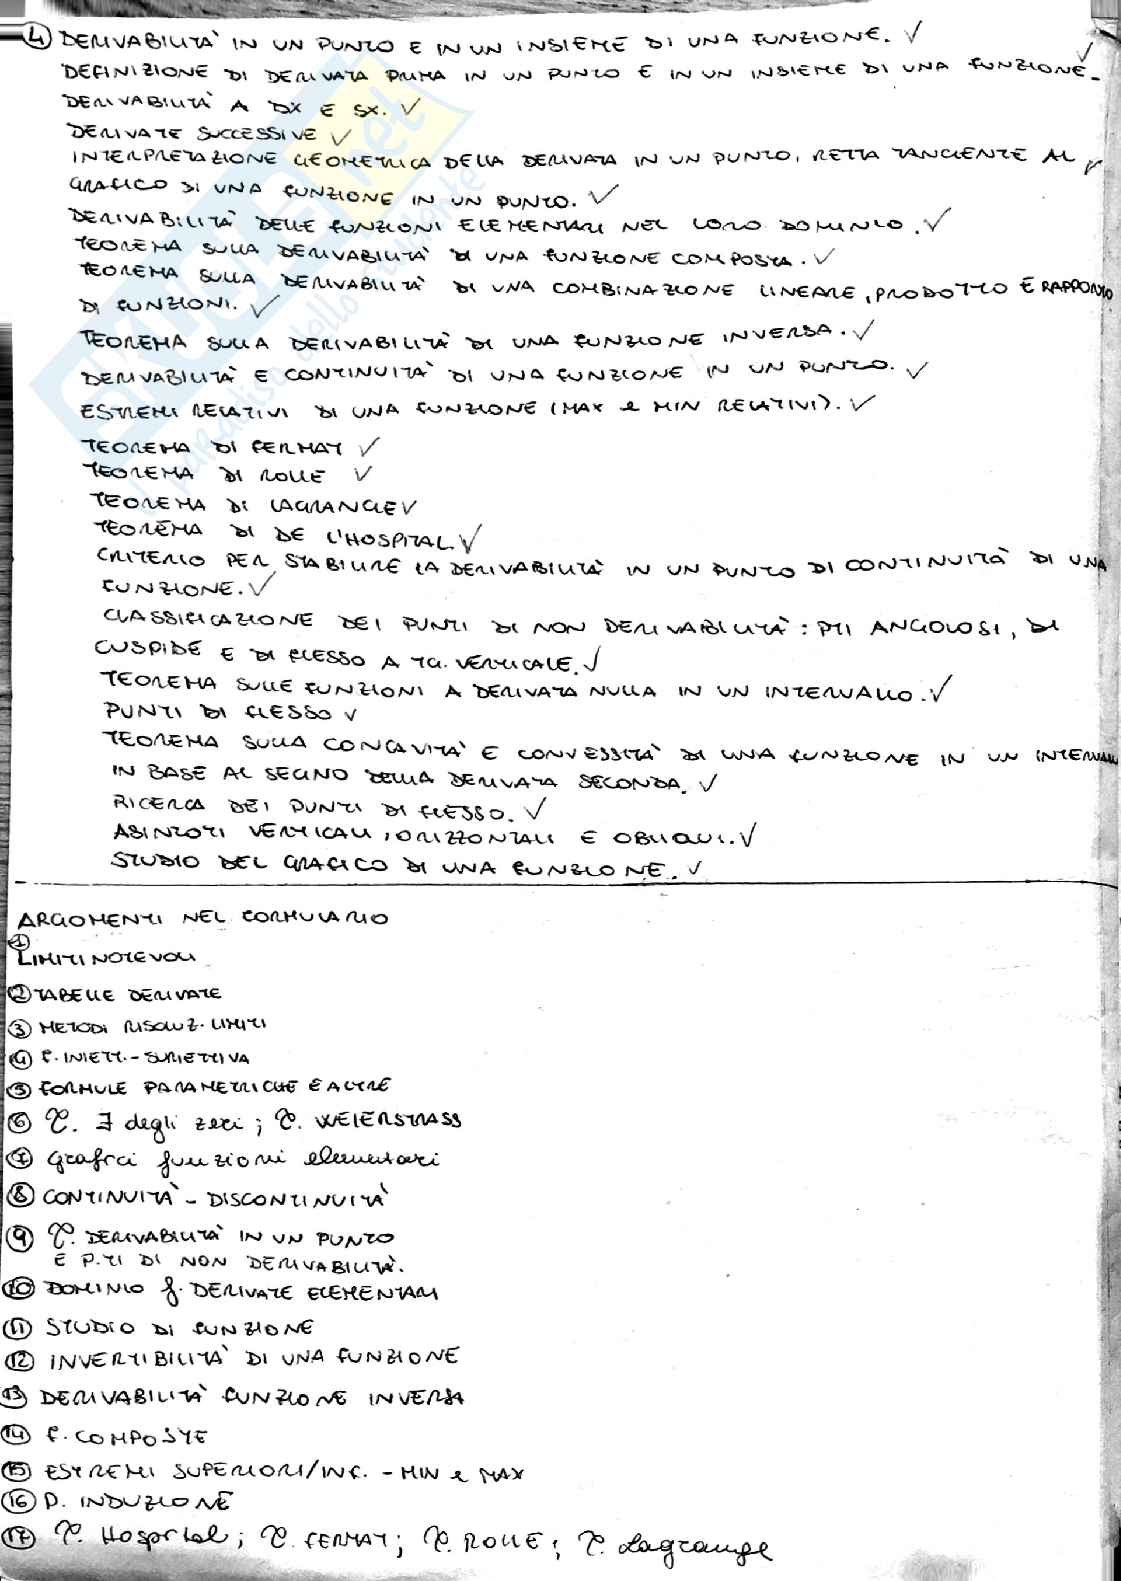 ④ DERIVABILITÀ IN UN PUNTO E IN UN INSIEME DI UNA FUNZIONE. ✓
DEFINIZIONE DI DERIVATA PRIMA IN UN PUNTO E IN UN INSIEME DI UNA FUNZIONE. ✓
DERIVABILITÀ A DX E SX. ✓
DERIVATE SUCCESSIVE ✓
INTERPRETAZIONE GEOMETRICA DELLA DERIVATA IN UN PUNTO, RETTA TANGENTE AL ✓
GRAFICO DI UNA FUNZIONE IN UN PUNTO. ✓
DERIVABILITÀ DELLE FUNZIONI ELEMENTARI NEL LORO DOMINIO. ✓
TEOREMA SULLA DERIVABILITÀ DI UNA FUNZIONE COMPOSTA. ✓
TEOREMA SULLA DERIVABILITÀ DI UNA COMBINAZIONE LINEARE, PRODOTTO E RAPPORTO
DI FUNZIONI. ✓
TEOREMA SULLA DERIVABILITÀ DI UNA FUNZIONE INVERSA. ✓
DERIVABILITÀ E CONTINUITÀ DI UNA FUNZIONE IN UN PUNTO. ✓
ESTREMI RELATIVI DI UNA FUNZIONE (MAX e MIN RELATIVI). ✓
TEOREMA DI FERMAT ✓
TEOREMA DI ROLLE ✓
TEOREMA DI LAGRANGE ✓
TEOREMA DI DE L'HOSPITAL ✓
CRITERIO PER STABILIRE LA DERIVABILITÀ IN UN PUNTO DI CONTINUITÀ DI UNA
FUNZIONE. ✓
CLASSIFICAZIONE DEI PUNTI DI NON DERIVABILITÀ: PTI ANGOLOSI, DI
CUSPIDE E DI FLESSO A TG. VERTICALE. ✓
TEOREMA SULLE FUNZIONI A DERIVATA NULLA IN UN INTERVALLO. ✓
PUNTI DI FLESSO ✓
TEOREMA SULLA CONCAVITÀ E CONVESSITÀ DI UNA FUNZIONE IN UN INTERVALLO
IN BASE AL SEGNO DELLA DERIVATA SECONDA. ✓
RICERCA DEI PUNTI DI FLESSO. ✓
ASINTOTI VERTICALI, ORIZZONTALI E OBLIQUI. ✓
STUDIO DEL GRAFICO DI UNA FUNZIONE. ✓
ARGOMENTI NEL FORMULARIO
① LIMITI NOTEVOLI
② TABELLE DERIVATE
③ METODI RISOLUZ. LIMITI
④ F. INIETT. - SURIETTIVA
⑤ FORMULE PARAMETRICHE E ALTRE
⑥ T. ∃ degli zeri; T. WEIERSTRASS
⑦ Grafici funzioni elementari
⑧ CONTINUITÀ - DISCONTINUITÀ
⑨ T. DERIVABILITÀ IN UN PUNTO
E P.TI DI NON DERIVABILITÀ.
⑩ DOMINIO f. DERIVATE ELEMENTARI
⑪ STUDIO DI FUNZIONE
⑫ INVERTIBILITÀ DI UNA FUNZIONE
⑬ DERIVABILITÀ FUNZIONE INVERSA
⑭ F. COMPOSTE
⑮ ESTREMI SUPERIORI/INF. - MIN e MAX
⑯ P. INDUZIONE
⑰ T. Hospital; T. FERMAT; T. ROLLE; T. Lagrange
SKUOLA.net
il paradiso dello studente